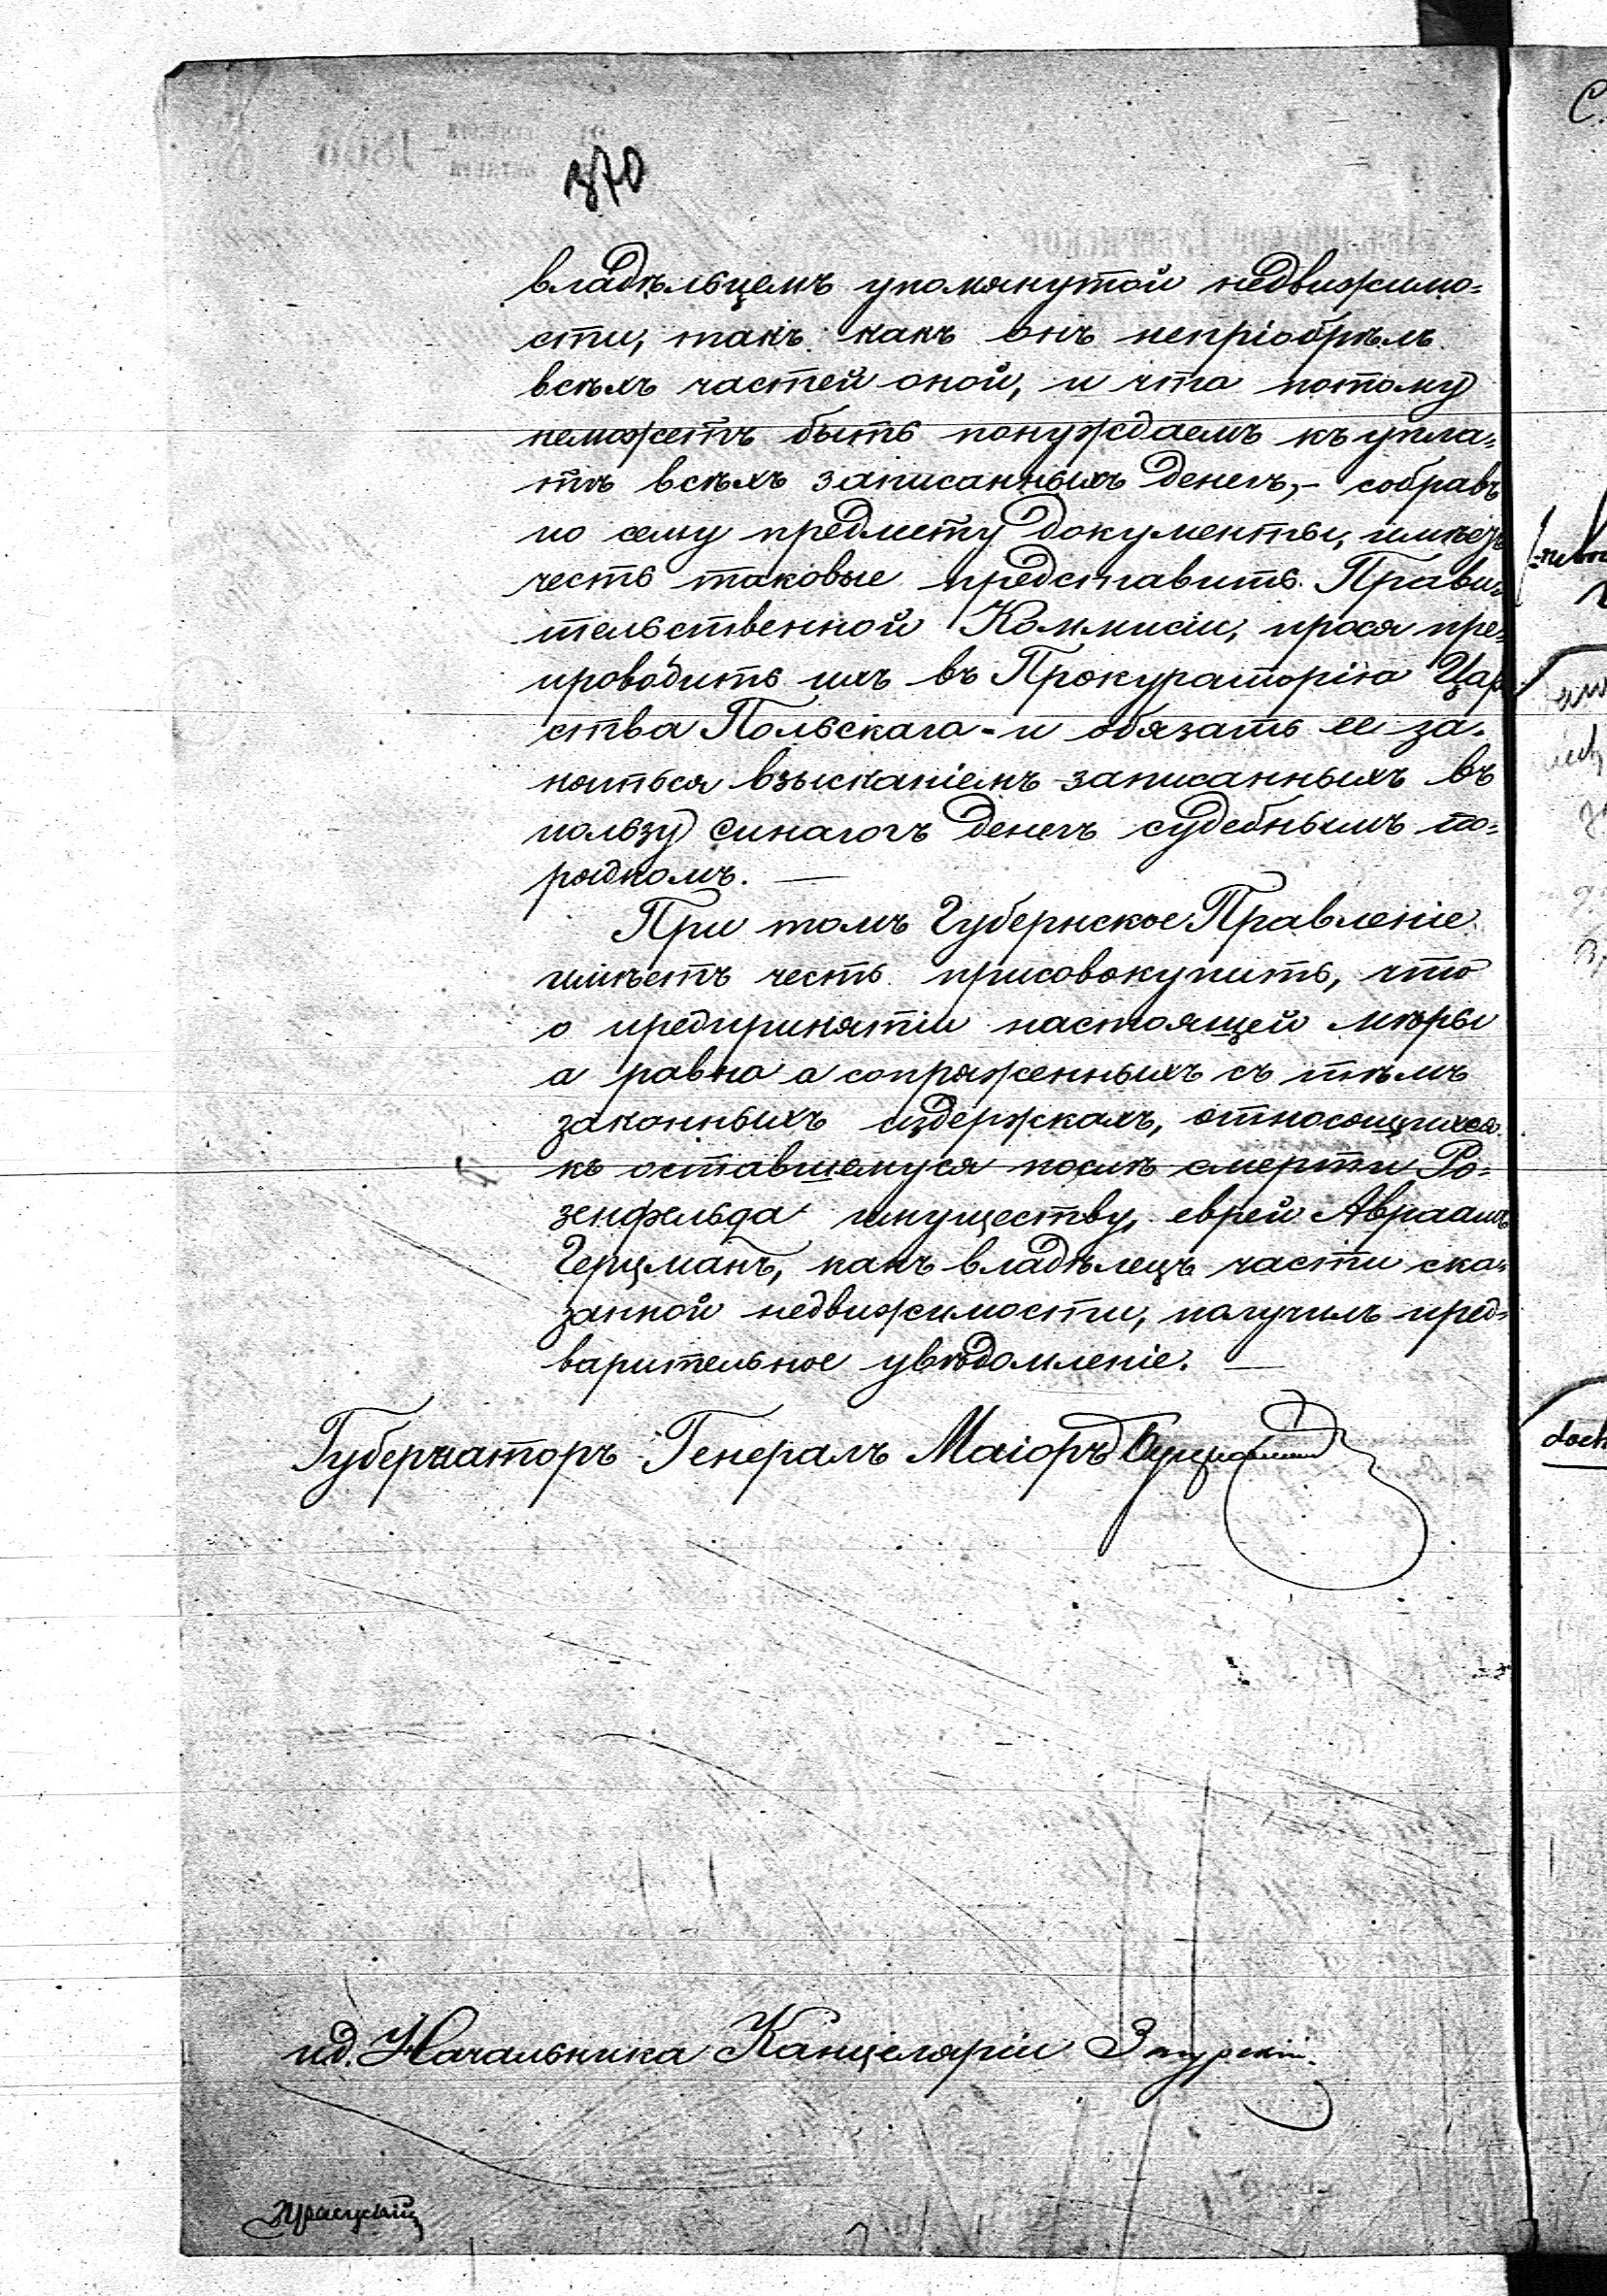 370
владѣльцемъ упомянутой недвижимо=
сти, такъ какъ онъ непріобрѣлъ
всѣхъ частей оной, и что потому
неможетъ быть понуждаемъ къ упла=
тѣ всѣхъ записанныхъ денегъ,- собравъ
по сему предмету документы, имѣетъ
честь таковые представить Прави=
тельственной Коммисіи, прося пре=
проводить ихъ въ Прокураторію Цар
ства Польскаго - и обязать ее за=
няться взысканіемъ записанныхъ въ
пользу синагогъ денегъ судебнымъ по=
рядкомъ. —
При томъ Губернское Правленіе
имѣетъ честь присовокупить, что
о предпринятіи настоящей мѣры
а равно о сопряженныхъ съ тѣмъ
законныхъ издержкахъ, относящихся
къ оставшемуся послѣ смерти Ро=
зенфельда имуществу, еврей Авраамъ
Герцманъ, какъ владѣлецъ части ска=
занной недвижимости, получилъ пред=
варительное увѣдомленіе. —
Губернаторъ Генералъ Маіоръ
ид. Начальника Канцеляріи